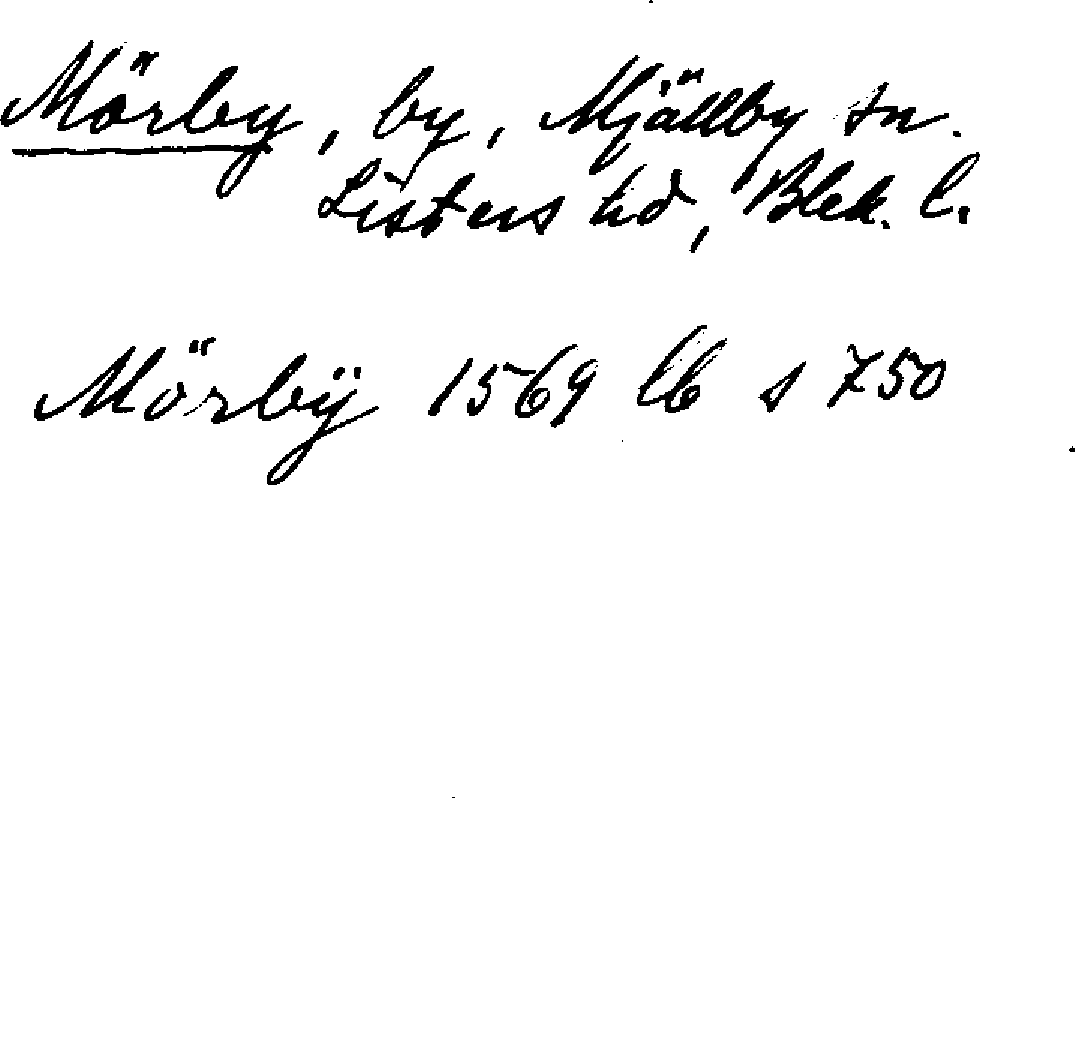 Mörby, by, Mjällby sn.
Listers hd, Blek. l.
Mörbÿ 1569 lb s 750